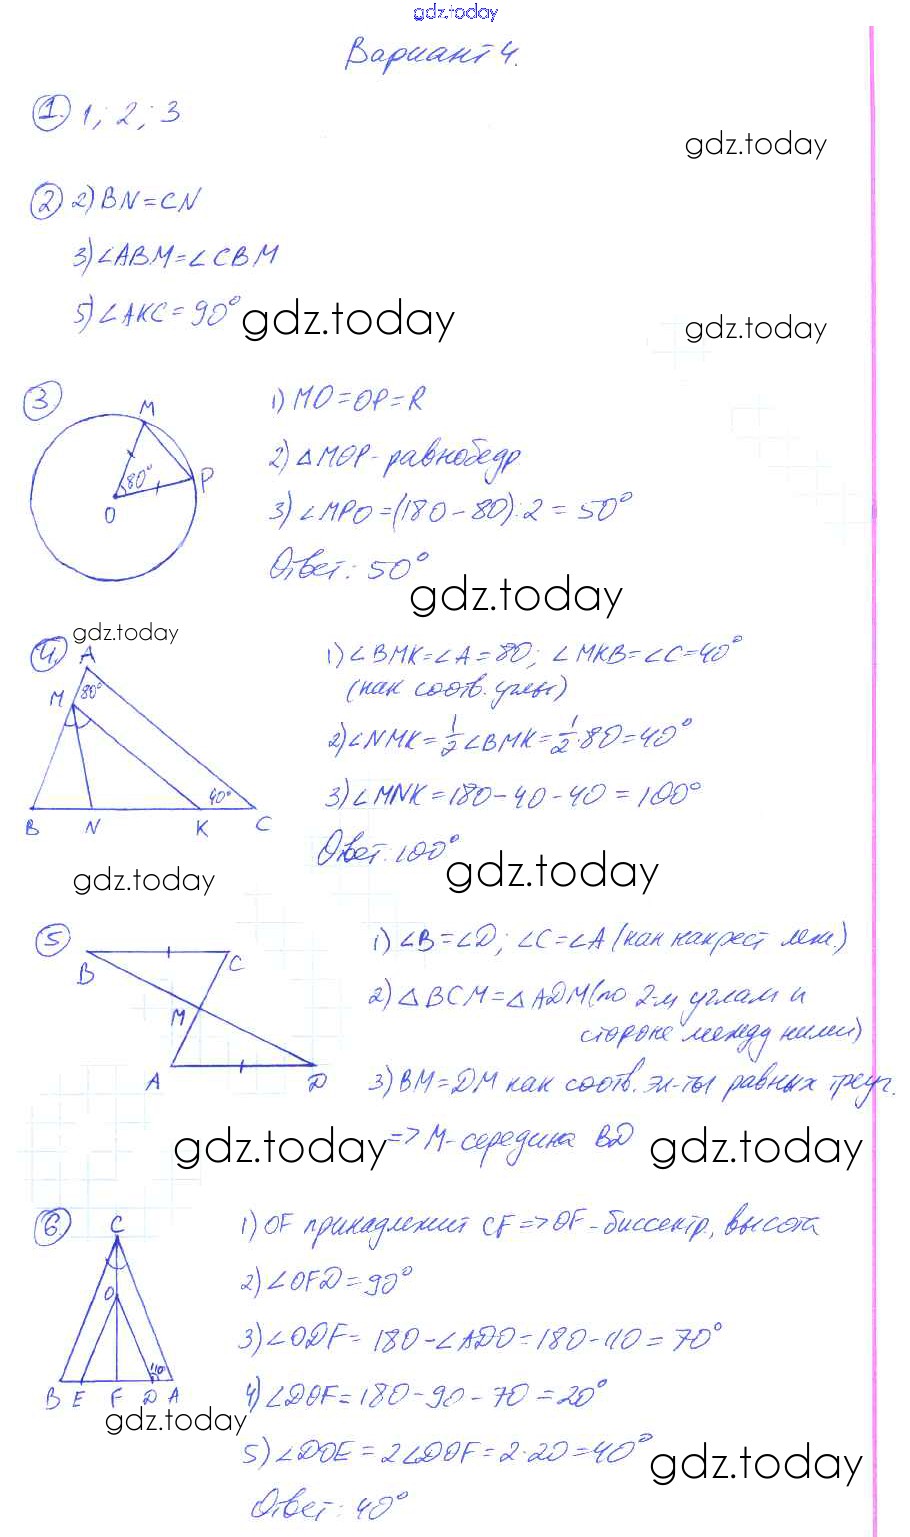 gdz.today
Вариант 4.
1. 1; 2; 3
gdz.today
2 2) BN=CN
3) ∠ABM=∠CBM
5) ∠AKC=90°
gdz.today
gdz.today
3
M
80°
P
O
1) MO=OP=R
2) △MOP-равнобедр
3) ∠MPO=(180-80):2=50°
Ответ: 50°
gdz.today
gdz.today
4.
A
M 80°
40°
B N K C
1) ∠BMK=∠A=80; ∠MKB=∠C=40°
(как соотв. углы)
2) ∠NMK=1/2∠BMK=1/2·80=40°
3) ∠MNK=180-40-40=100°
Ответ: 100°
gdz.today
gdz.today
5
B C
M
A D
1) ∠B=∠D; ∠C=∠A (как накрест леж.)
2) △BCM=△ADM (по 2-м углам и
стороне между ними)
3) BM=DM как соотв. эл-ты равных треуг.
=> M-середина BD
gdz.today
gdz.today
6
C
O
110°
B E F D A
1) OF принадлежит CF=>OF-биссектр., высота
2) ∠OFD=90°
3) ∠ODF=180-∠ADO=180-110=70°
4) ∠DOF=180-90-70=20°
5) ∠DOE=2∠DOF=2·20=40°
Ответ: 40°
gdz.today
gdz.today